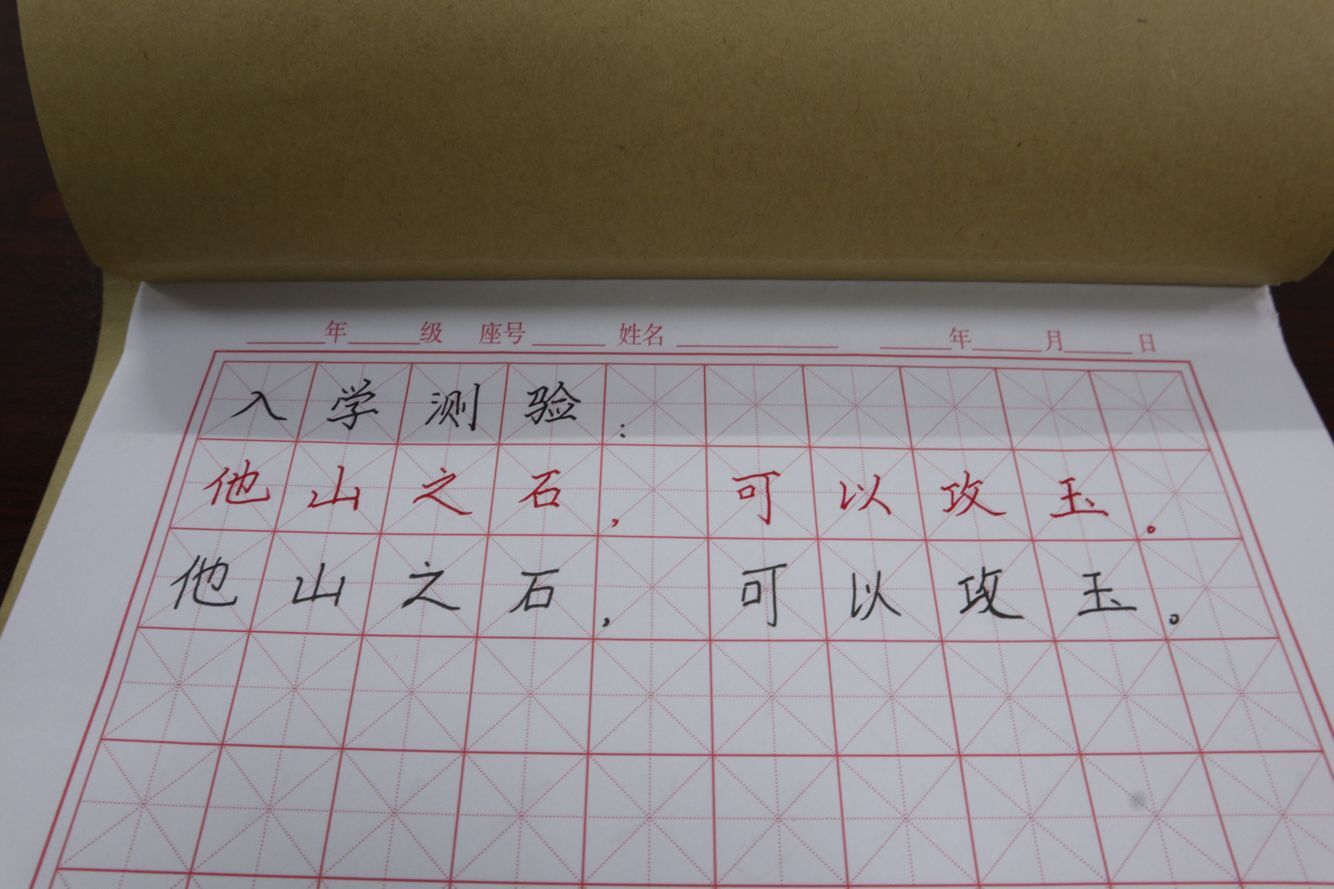 年 级 座号 姓名 年 月 日
入学测验:
他山之石，可以攻玉。
他山之石，可以攻玉。